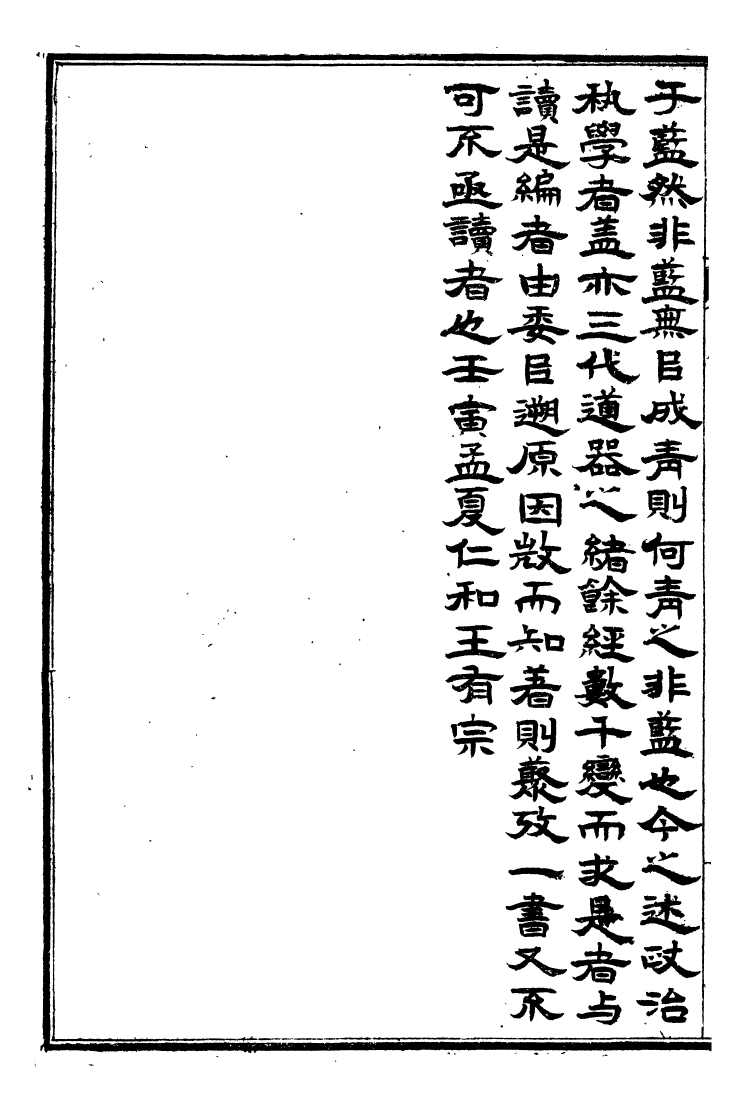 于藍然非藍無㠯成青則何青之非藍也今之述政治
秇學者盖亦三代道器之緒餘經數千變而求是者与
讀是編者由委㠯遡原因𢼸而知著則藂攷一書又不
可不亟讀者也壬寅孟夏仁和王有宗